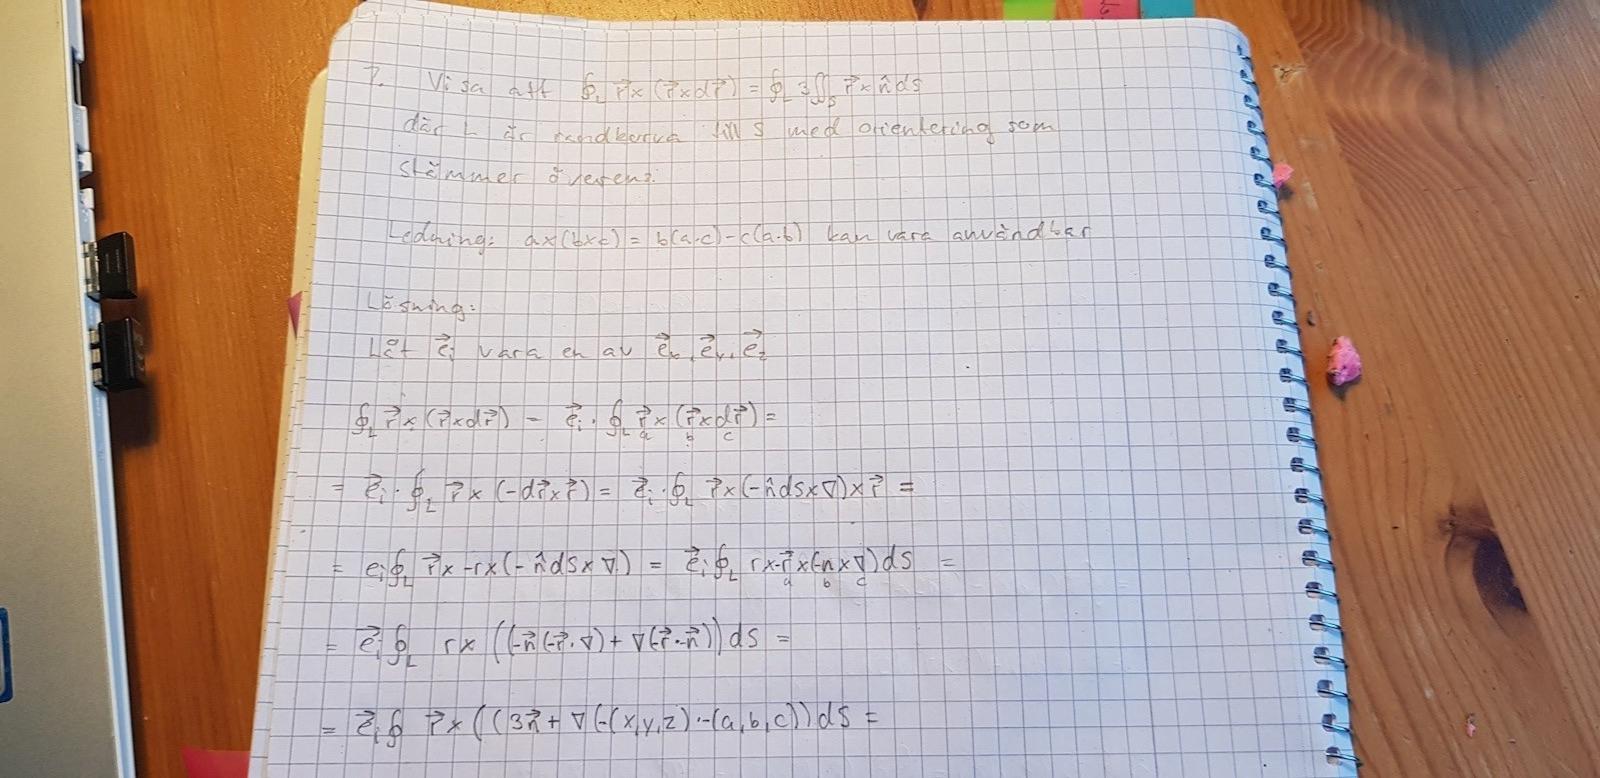 7. Visa att ∮L r⃗×(r⃗×dr⃗) = ∮L 3∬S r⃗×n̂ds
där L är randkurva till S med orientering som
stämmer överens.
Ledning: ax(bxc) = b(a·c)-c(a·b) kan vara användbar
Lösning:
Låt e⃗i vara en av e⃗x, e⃗y, e⃗z
∮L r⃗×(r⃗×dr⃗) - e⃗i · ∮L r⃗×(r⃗×dr⃗) =
a b c
= e⃗i · ∮L r⃗×(-dr⃗×r⃗) = e⃗i · ∮L r⃗×(-n̂ds×∇)×r⃗ =
= ei∮L r⃗×-r×(-n̂dS×∇) = e⃗i∮L r×-r⃗×(-n×∇)ds =
a b c
= e⃗i∮L r×((-n⃗(-r⃗·∇)+∇(-r⃗·-n⃗))ds =
= e⃗i∮ r⃗×((3n⃗+∇(-(x,y,z)·-(a,b,c))dS =